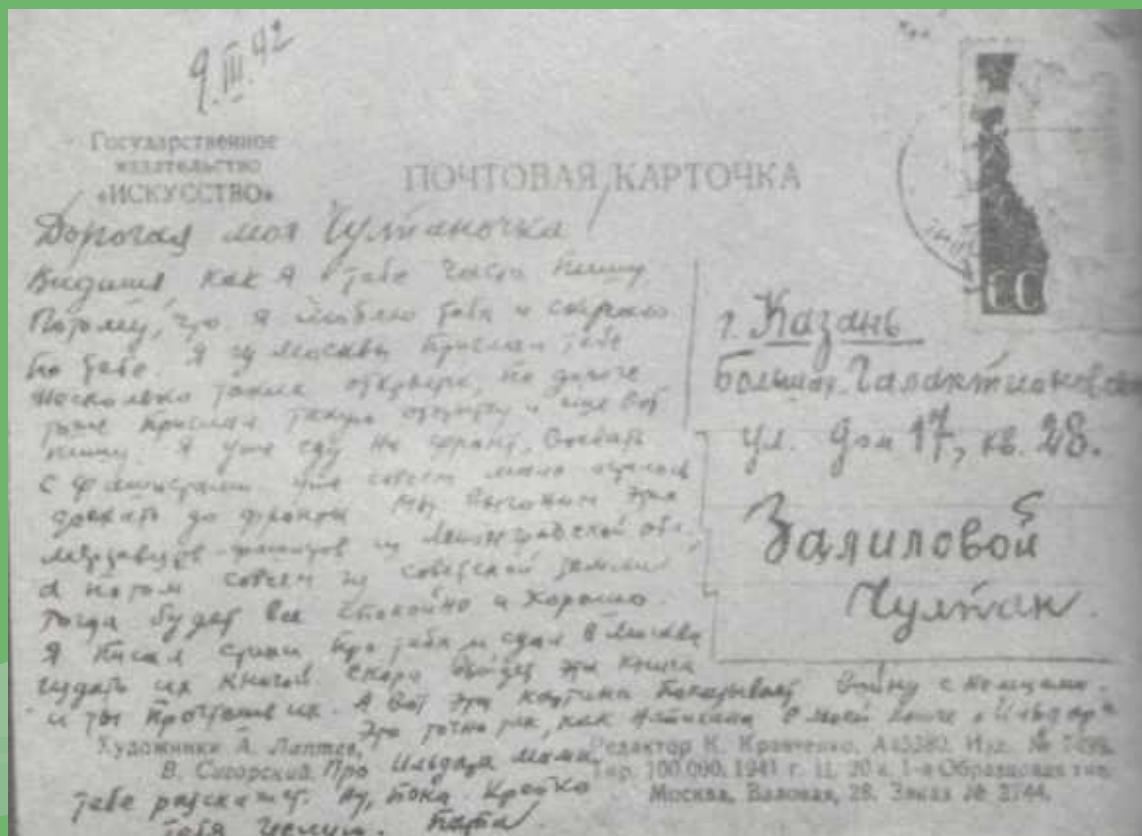 9.III.42
Государственное
издательство
«ИСКУССТВО»
ПОЧТОВАЯ КАРТОЧКА
Дорогая моя Чулпаночка
Видишь как я тебе часто пишу
Потому, что я люблю тебя и скучаю
по тебе. Я из Москвы прислал тебе
несколько таких открыток, по дороге
тоже прислал такую открытку и еще вот
пишу. Я уже еду на фронт, воевать
с фашистами уже совсем мало осталось
доехать до фронта Мы выгоним этих
мерзавцев-фашистов из Ленинградской обл.,
а потом совсем из советской земли
Тогда будет все спокойно и хорошо.
Я писал стихи про тебя и сдал в Москве
издать их книгой. Скоро выйдет эта книга
и ты прочтешь их. А вот эта картина показывает войну с немцами.
Это точно так, как написана в моей книге „Ильдар"
Про Ильдара мама
тебе расскажет. Ну, пока Крепко
тебя целую. Папа
г. Казань
Большая Галактионовская
ул. дом 17, кв. 28.
Залиловой
Чулпан.
Художники А. Лаптев,
В. Сигорский.
Редактор К. Кравченко. А45380. Изд. №
Тир. 100.000. 1941 г. Ц. 20 к. 1-я Образцовая тип.
Москва, Валовая, 28. Заказ № 2744.